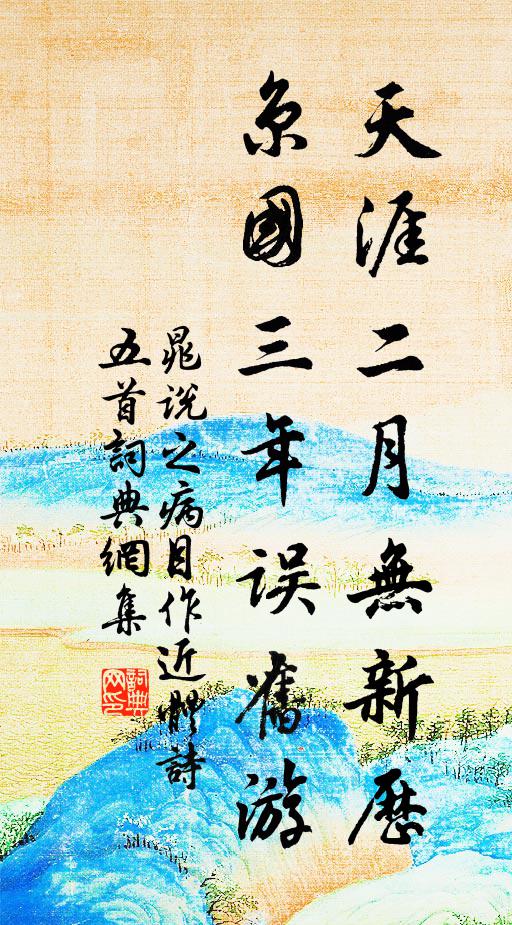 天涯二月無新歷
京國三年误舊游
晁说之病目作近體詩
五首詞典網集
詞典
网印